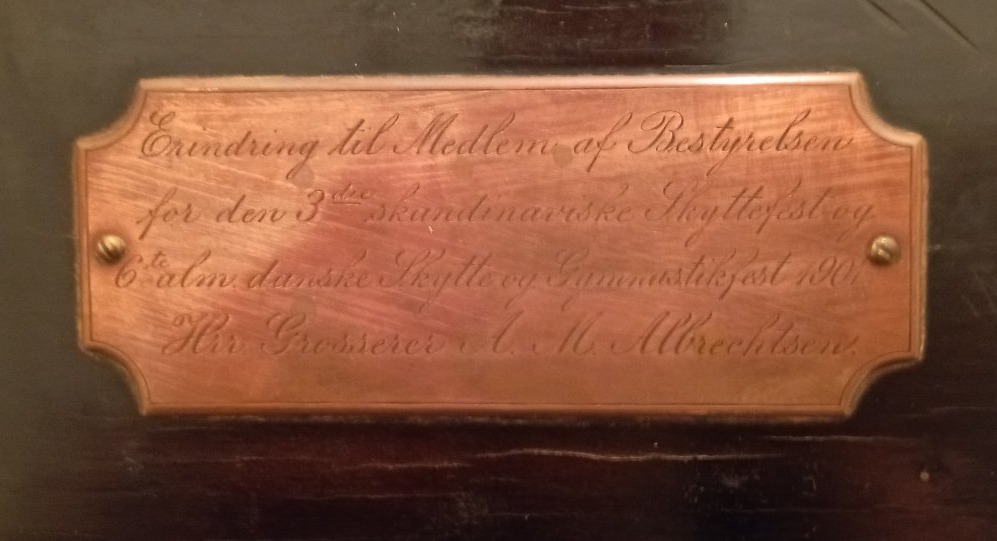 Erindring til Medlem af Bestyrelsen
for den 3dre skandinaviske Skyttefest og
6te alm. danske Skytte og Gymnastikfest 1901
Hrr. Grosserer A. M. Albrechtsen.